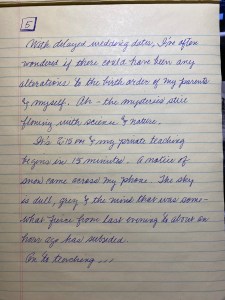 5
With delayed wedding dates, I'm often
wondered if there could have been any
alterations to the birth order of my parents
& myself. Ah - the mysteries still
flowing with science & nature.
It's 6:15 am & my private teaching
begins in 15 minutes. A notice of
snow came across my phone. The sky
is dull, grey & the wind that was some-
what fierce from last evening to about an
hour ago has subsided.
On to teaching ...